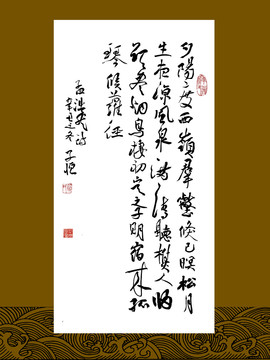 夕陽度西嶺群壑倏已暝松月
生夜涼風泉滿清聽樵人歸
欲盡烟鳥棲初定之子期宿來孤
琴候蘿徑
孟浩然詩